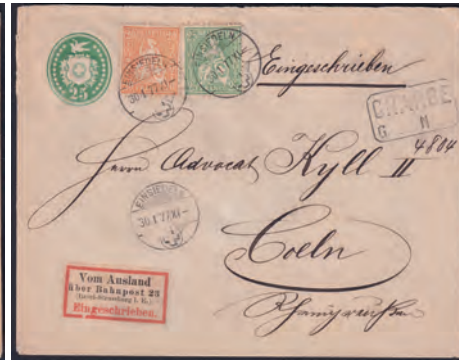 25
EINSIEDELN
30.I.77.XI–
EINSIEDELN
30.I.77.XI–
Eingeschrieben
CHARGE
G N
4804
Herrn Advocat Kyll II
EINSIEDELN
30.I.77.XI–
Coeln
Vom Ausland
über Bahnpost 23
Eingeschrieben.